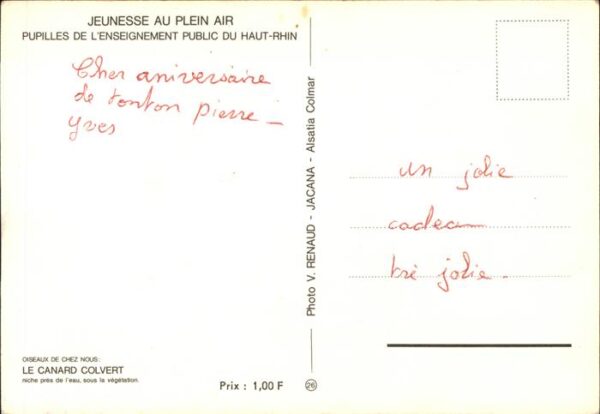 JEUNESSE AU PLEIN AIR
PUPILLES DE L'ENSEIGNEMENT PUBLIC DU HAUT-RHIN
Cher aniversaire
de tonton pierre -
yves
un jolie
cadeau
tré jolie.
Photo V. RENAUD - JACANA - Alsatia Colmar
OISEAUX DE CHEZ NOUS:
LE CANARD COLVERT
niche près de l'eau, sous la végétation.
Prix : 1,00 F
26